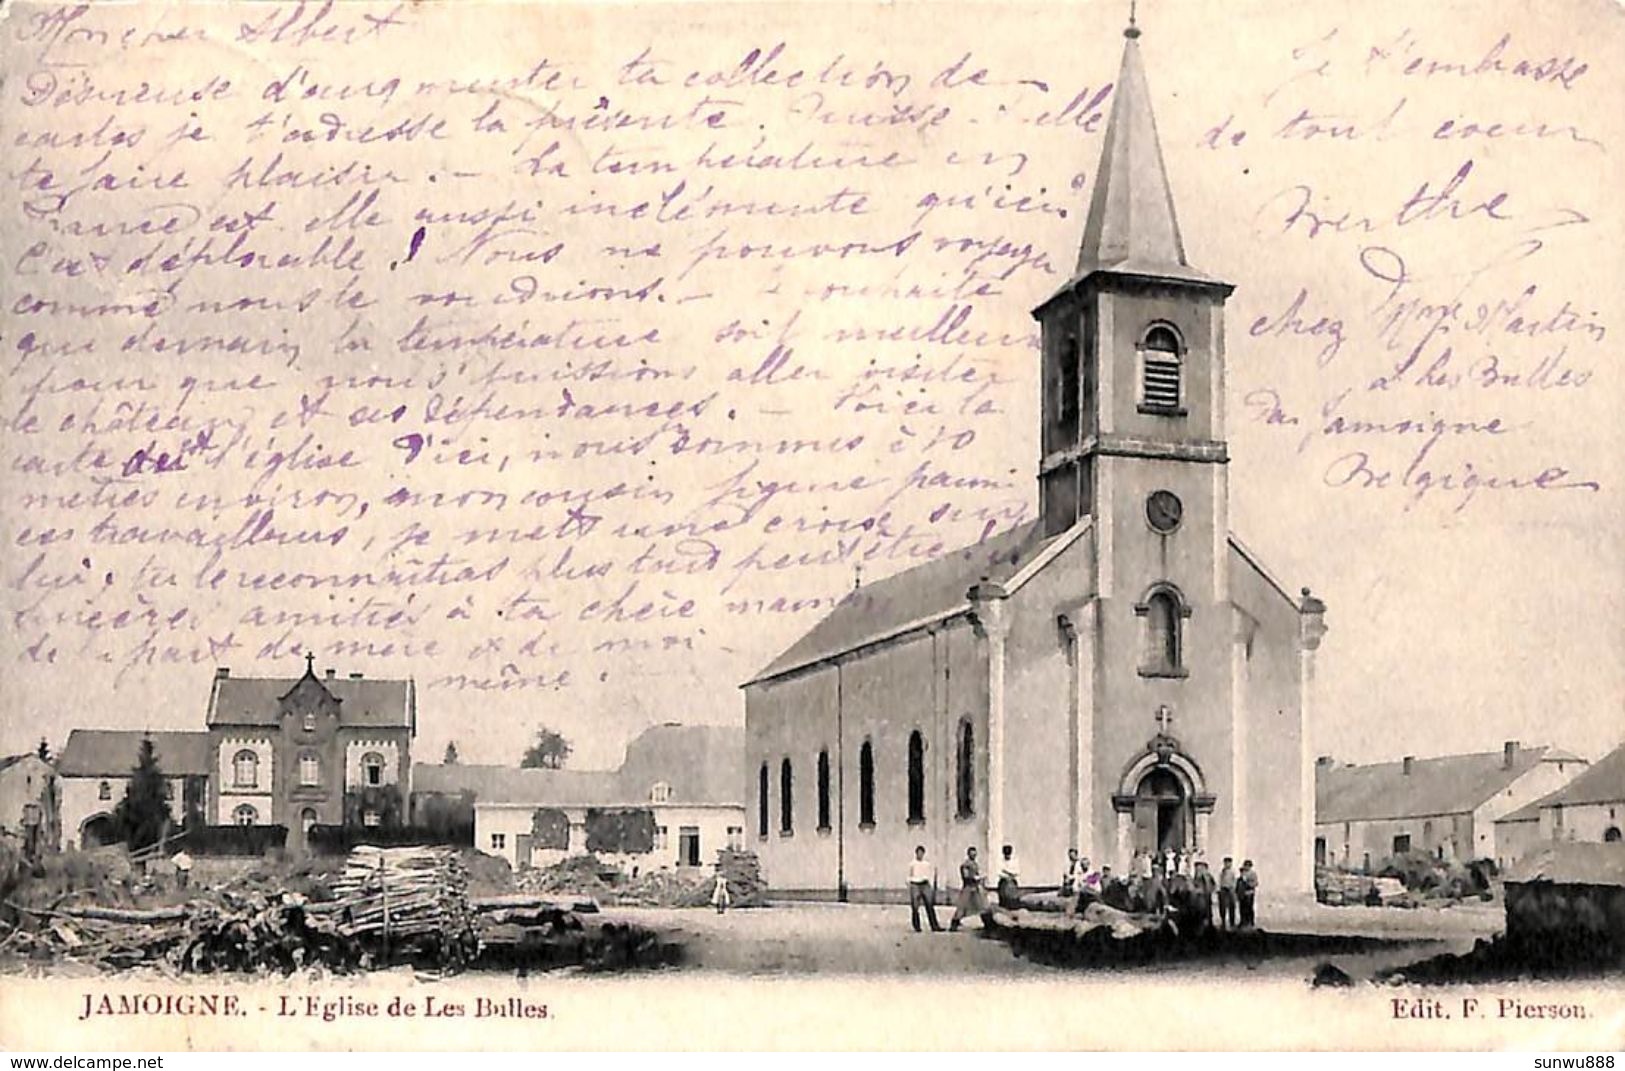 Mon cher Albert
Désireuse d'augmenter ta collection de
cartes je t'adresse la présente. Puisse-t-elle
te faire plaisir. - La température en
France est-elle aussi inclémente qu'ici?
C'est déplorable! Nous ne pouvons voyager
comme nous le voudrions. - Je souhaite
que demain la température soit meilleure
pour que nous puissions aller visiter
le château et ses dépendances. - Voici la
carte de l'église d'ici, nous sommes à 10
mètres environ, mon cousin figure parmi
ces travailleurs, je mets une croix sur
lui, tu le reconnaîtras plus tard peut être!
sincères amitiés à ta chère maman
de la part de mère & de moi
même.
Je t'embrasse
de tout coeur
Berthe
chez Mme Martin
à Les Bulles
Par Jamoigne
Belgique
JAMOIGNE. - L'Eglise de Les Bulles.
Edit. F. Pierson.
sunwu888